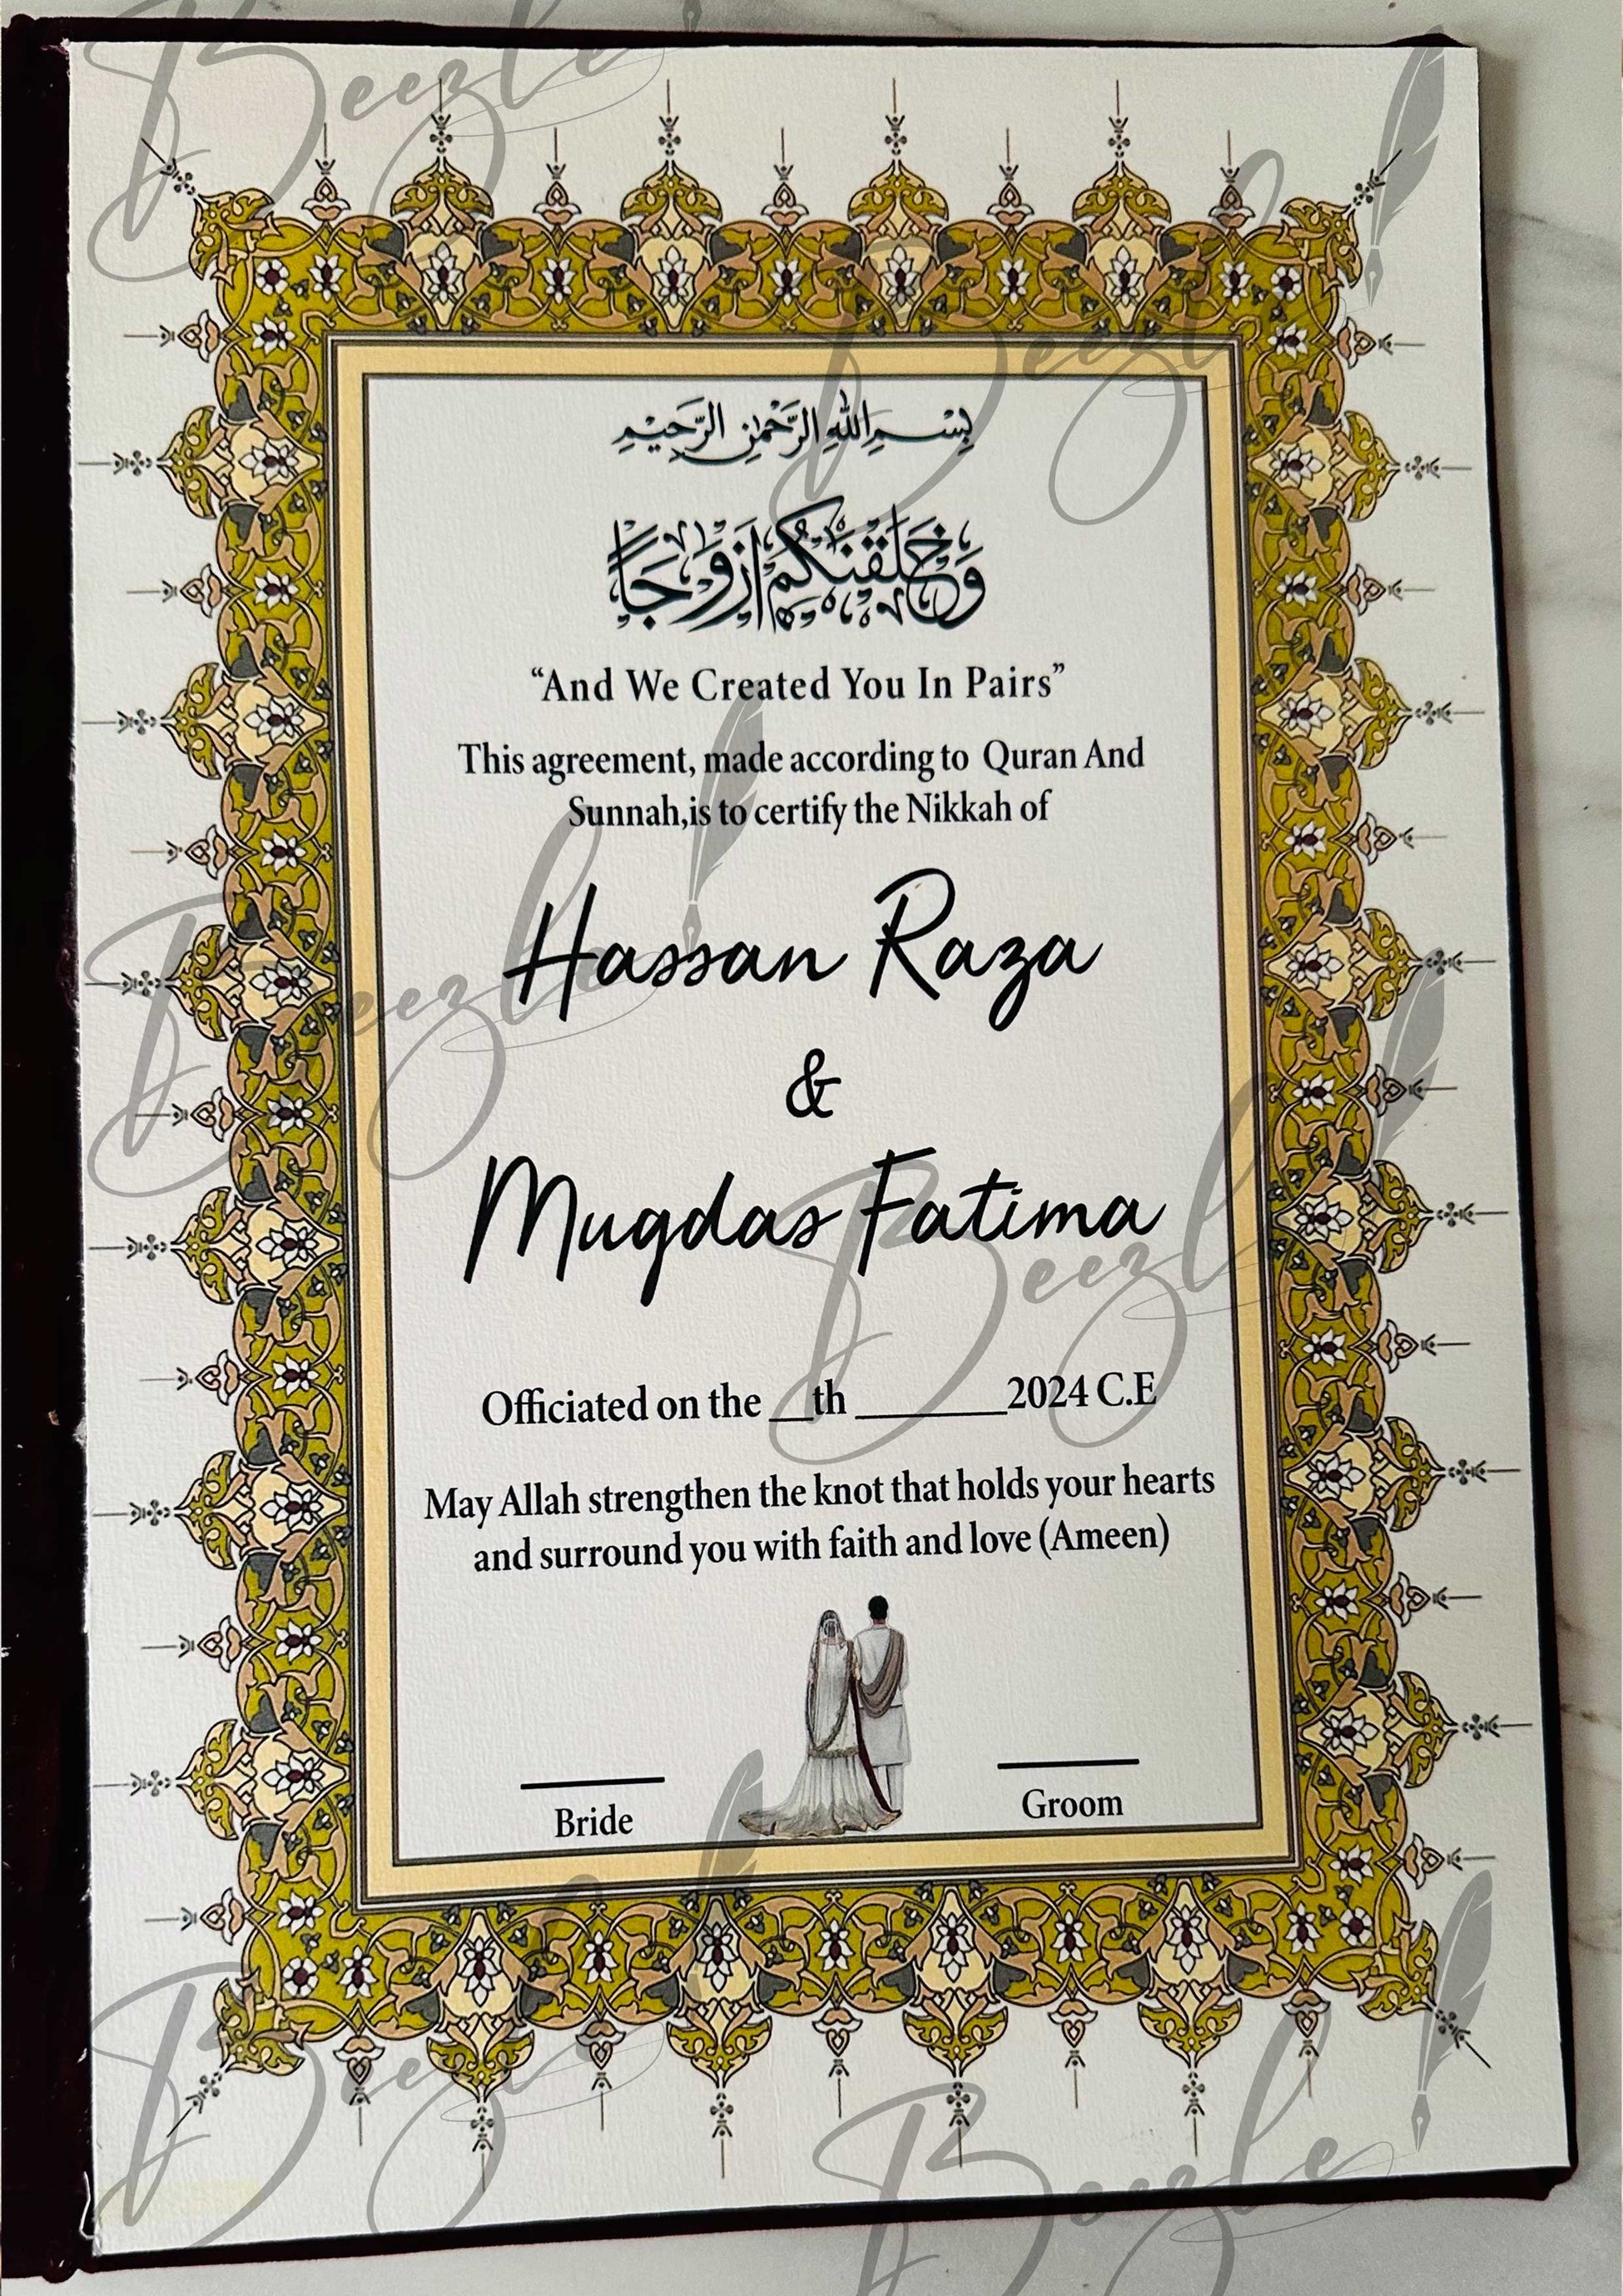 بِسْمِ اللهِ الرَّحْمٰنِ الرَّحِيْمِ
وَخَلَقْنٰكُمْ اَزْوَاجًا
“And We Created You In Pairs”
This agreement, made according to Quran And
Sunnah,is to certify the Nikkah of
Hassan Raza
&
Muqdas Fatima
Officiated on the __th _______2024 C.E
May Allah strengthen the knot that holds your hearts
and surround you with faith and love (Ameen)
Bride
Groom
Beezle
Beezle
Beezle
Beezle
Beezle
Beezle